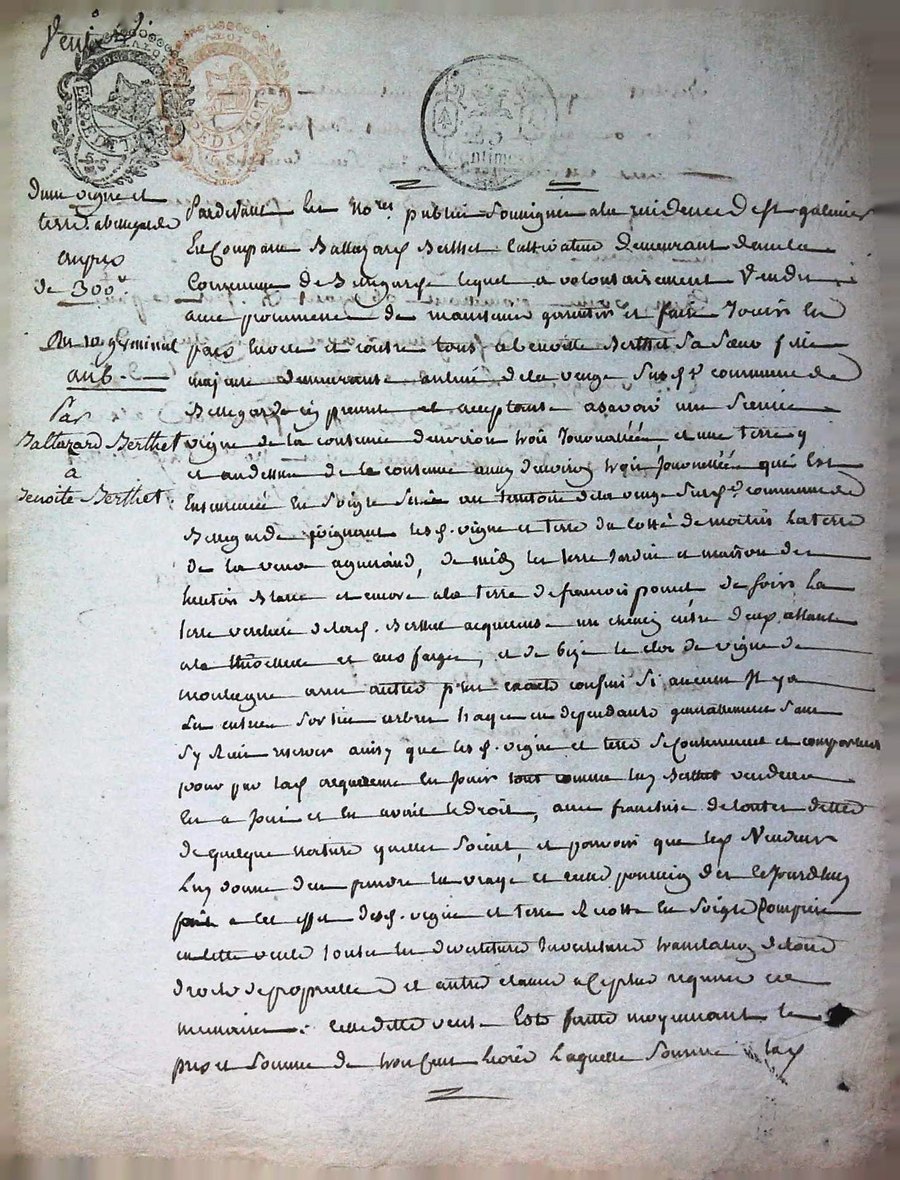 Vente
25
Centimes
D'une vigne et
terre a bellegarde
au prix
de 300#
Du 19 germinal
an 6
Par
Baltazard Berthet
à
Benoite Berthet
Pardevant les no.res publics soussignés a la residence d'est galmier
Est Comparu Baltazard Berthet Cultivateur demeurant dans la
Commune de Bellegarde lequel a volontairement Vendu
avec promesse de maintenir garentir et faire Jouir en
paix envers et contre tous a benoite Berthet Sa Sœur fille
majeure demeurante au lieu de la venge Susd.e commune de
Bellegarde ici presente et acceptante asavoir une
vigne de la contenue d'environ trois Journallées et une terre y
et au dessus de la contenue aussy d'environ trois Journallées qui est
Ensemencée en Soigle Située au territoire de la venge Susd.e commune de
Bellegarde joignant lesd. vigne et terre du cotté de matin la terre
de la veuve aguiraud, de midy les terre Jardin et maison de
et encore a la terre de françois poncet de Soir la
terre verchere de lad. Berthet acquereuse un chemin entre deux allant
a la et aux farges, et de bize le clos de vigne de
montagne avec autres plus exacts confins Si aucun Il y a
Les entrées Sorties arbres hayes en dependants generallement Sans
S'y Rien reserver ainsy que lesd. vigne et terre Se Contiennent et comportent
pour par lad. acquereuse en Jouir tout comme led. Berthet vendeur
En a Joui et en avoit le droit, avec franchise de toutes dettes
de quelque nature quelles Soient, et pouvoir que led. Vendeur
Luy donne d'en prendre la vraye et reelle possession des le Jourd'huy
a cet effet desd. vigne et terre Recolte en Soigle Comprise
en cette vente toutes les devetitures Investitures translation de tous
droits de proprieté et autres clauses a ce plus requises et
necessaires. Cette ditte vente Est faitte moyennant le
prix et Somme de trois Cent livres Laquelle Somme lad.